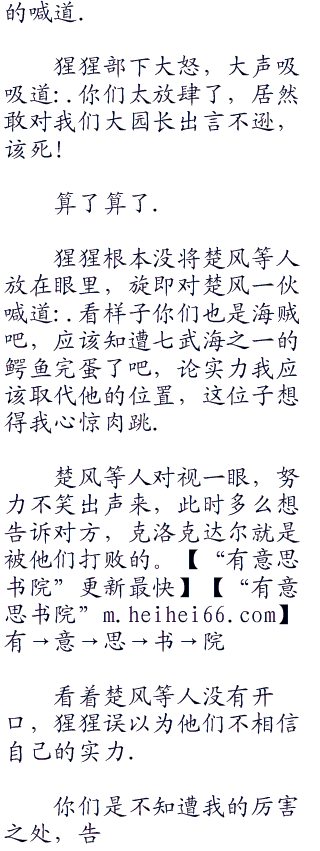 的喊道.
猩猩部下大怒，大声吸
吸道:.你们太放肆了，居然
敢对我们大园长出言不逊，
该死!
算了算了.
猩猩根本没将楚风等人
放在眼里，旋即对楚风一伙
喊道:.看样子你们也是海贼
吧，应该知遭七武海之一的
鳄鱼完蛋了吧，论实力我应
该取代他的位置，这位子想
得我心惊肉跳.
楚风等人对视一眼，努
力不笑出声来，此时多么想
告诉对方，克洛克达尔就是
被他们打败的。【“有意思
书院”更新最快】【“有意
思书院”m.heihei66.com】
有→意→思→书→院
看着楚风等人没有开
口，猩猩误以为他们不相信
自己的实力.
你们是不知遭我的厉害
之处，告